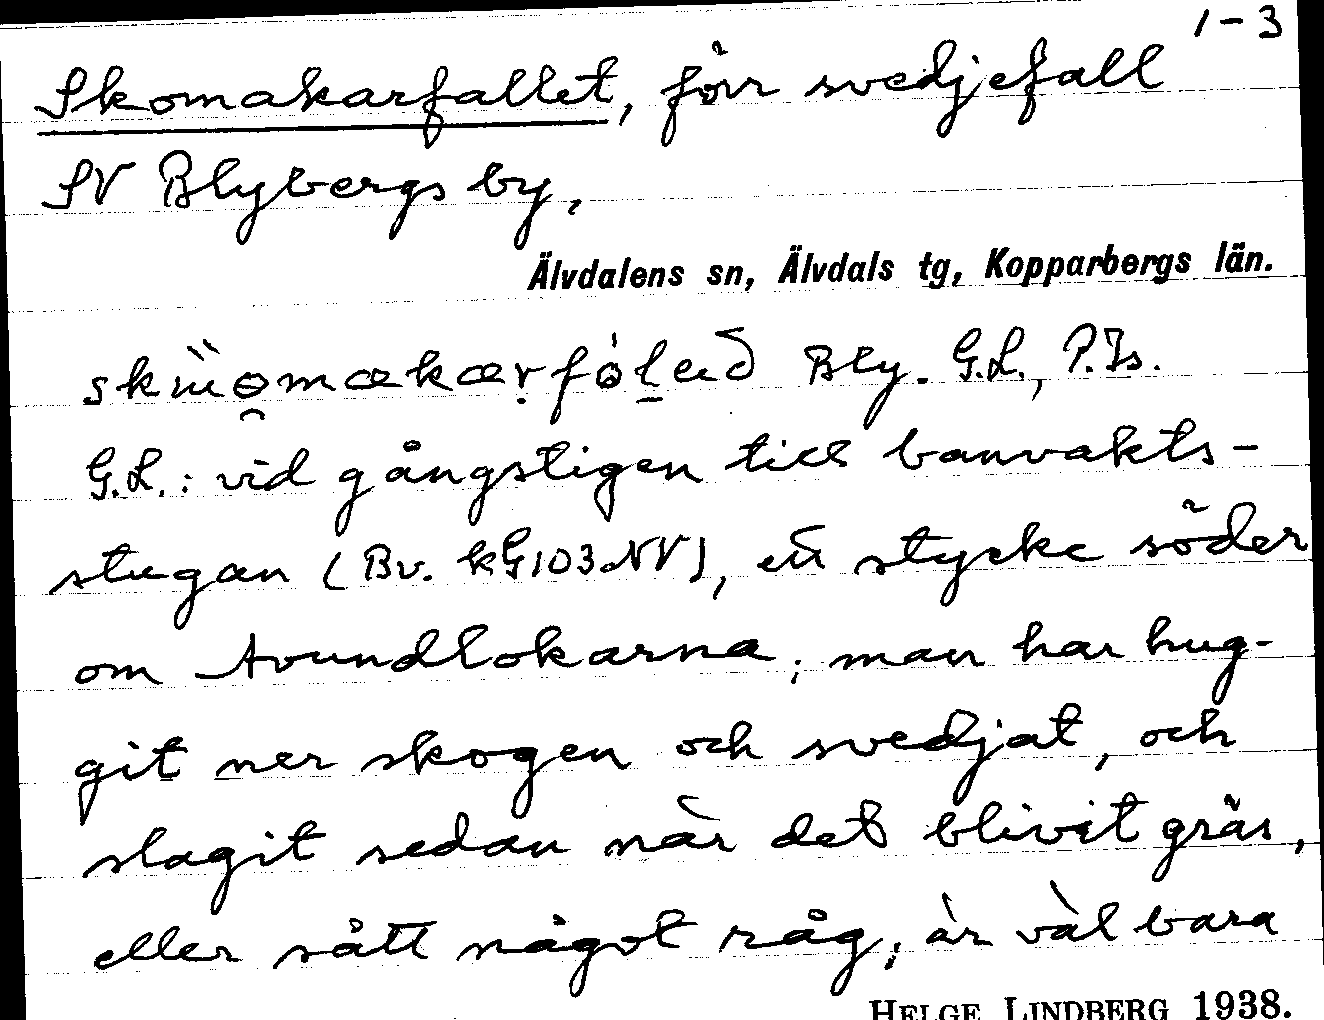 1-3
Skomakarfallet, förr svedjefall
SV Blybergs by,
Älvdalens sn, Älvdals tg, Kopparbergs län.
Bly. G.L., P.Is.
G.L.: vid gångstigen till banvakts-
stugan (Bv. kG103NV), ett stycke söder
om Avundlokarna; man har hug-
git ner skogen och svedjat, och
slagit sedan när det blivit gräs,
eller sått något råg; är väl bara
HELGE LINDBERG 1938.